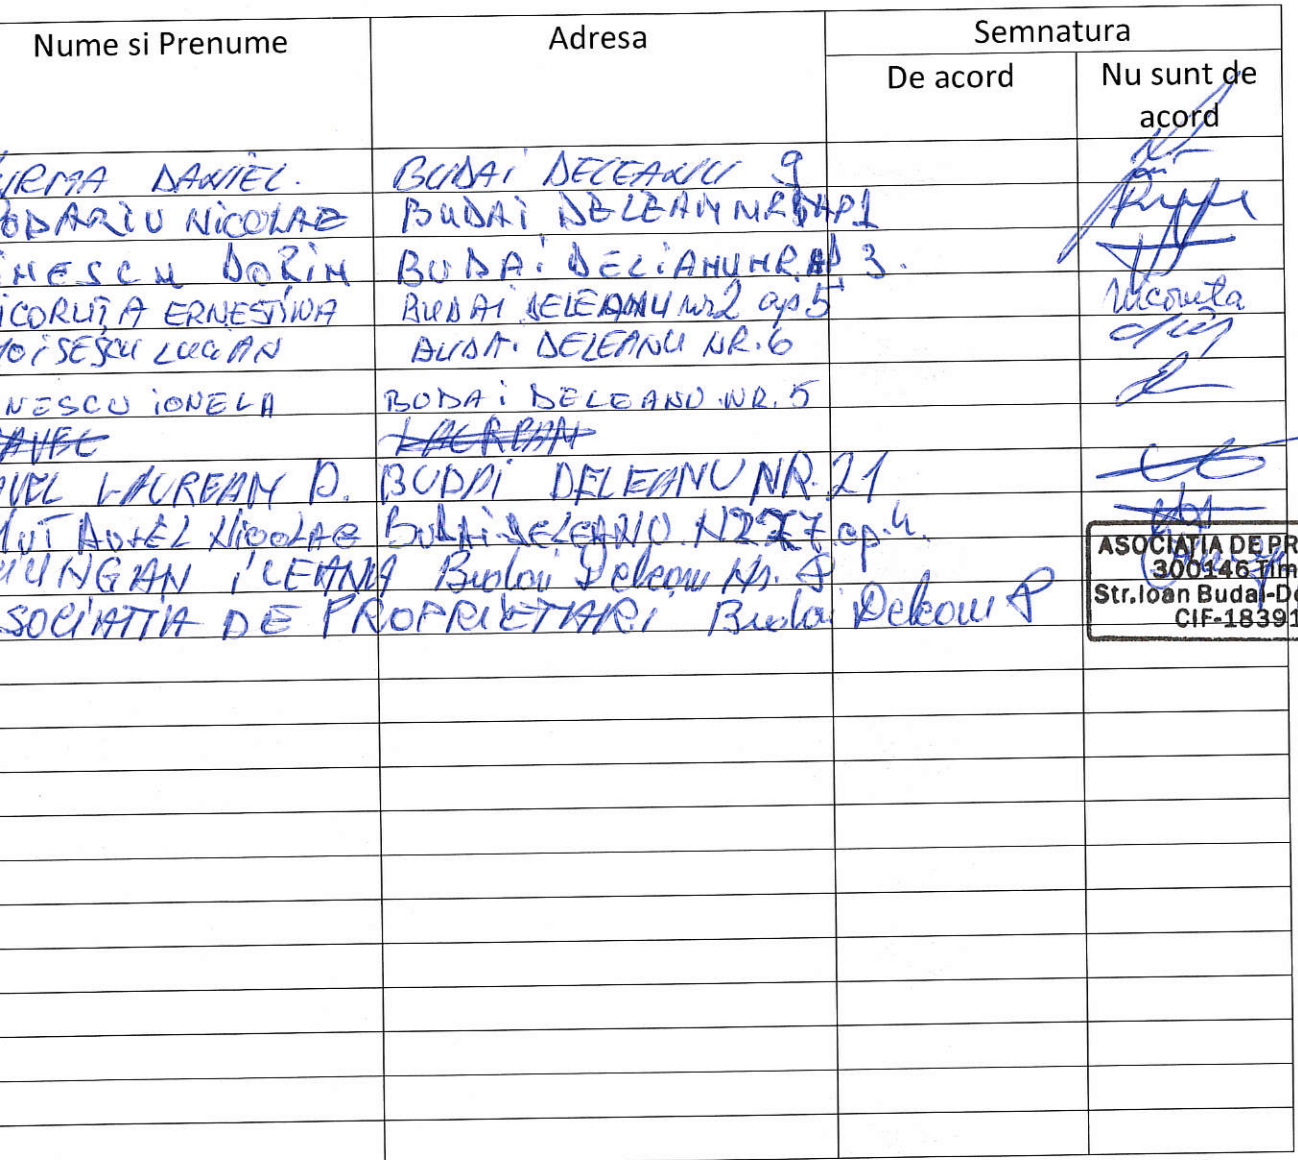 Nume si Prenume Adresa Semnatura
De acord Nu sunt de
acord
DANIEL. BUDAI DELEANU 9
NICOLAE BUDAI DELEANU NR AP1
DORIN BUDAI DELIANU NR 3.
ICORUȚA ERNESTINA BUDAI DELEANU nr2 ap5 Nicoruta
OISESCU LUCIAN BUDAI DELEANU NR.6
NESCU IONELA BUDAI DELEANU NR. 5
AVEL LAUREAN
AVEL LAUREAN D. BUDAI DELEANU NR. 21
AUREL NICOLAE BUDAI DELEANU ap 4.
UNGAN ILEANA Budai Deleanu Nr. 8
SOCIATIA DE PROPRIETARI Budai Deleanu 8
ASOCIAȚIA DE PR
300146 Tim
Str.Ioan Budai-De
CIF-18391